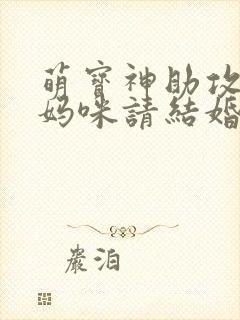 萌寶神助攻
媽咪請結婚
嚴泊